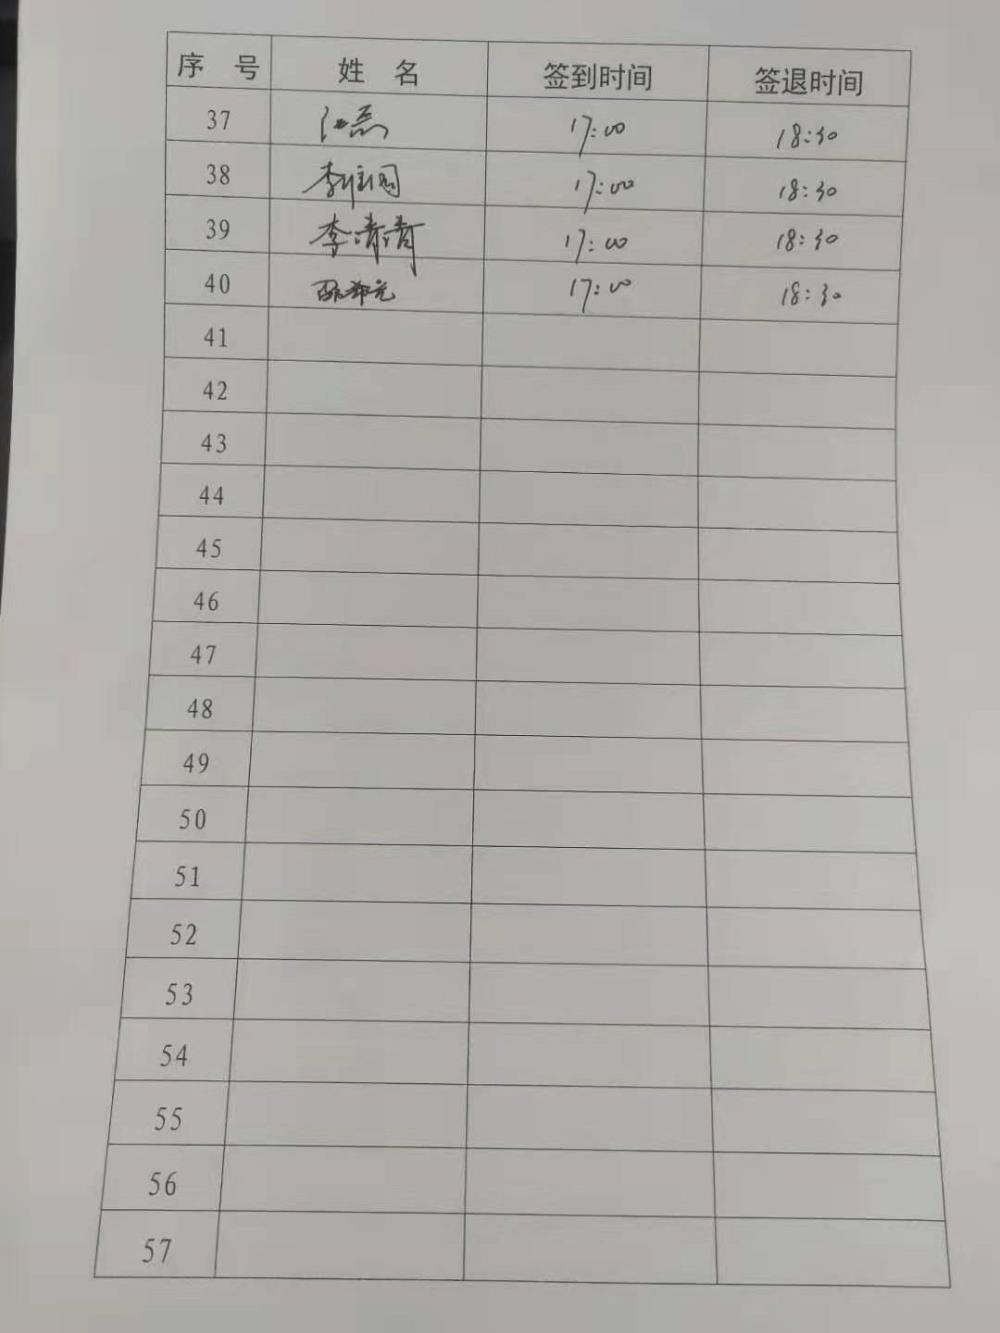 序 号 姓 名 签到时间 签退时间
37 17:00 18:30
38 李 17:00 18:30
39 李清清 17:00 18:30
40 17:00 18:30
41
42
43
44
45
46
47
48
49
50
51
52
53
54
55
56
57